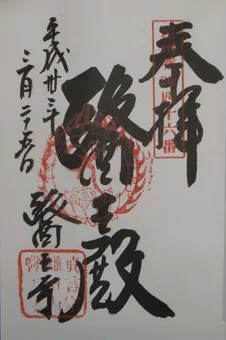 奉拝
十六番
醫王殿
平成廿三年
三月二十五日
醫王寺